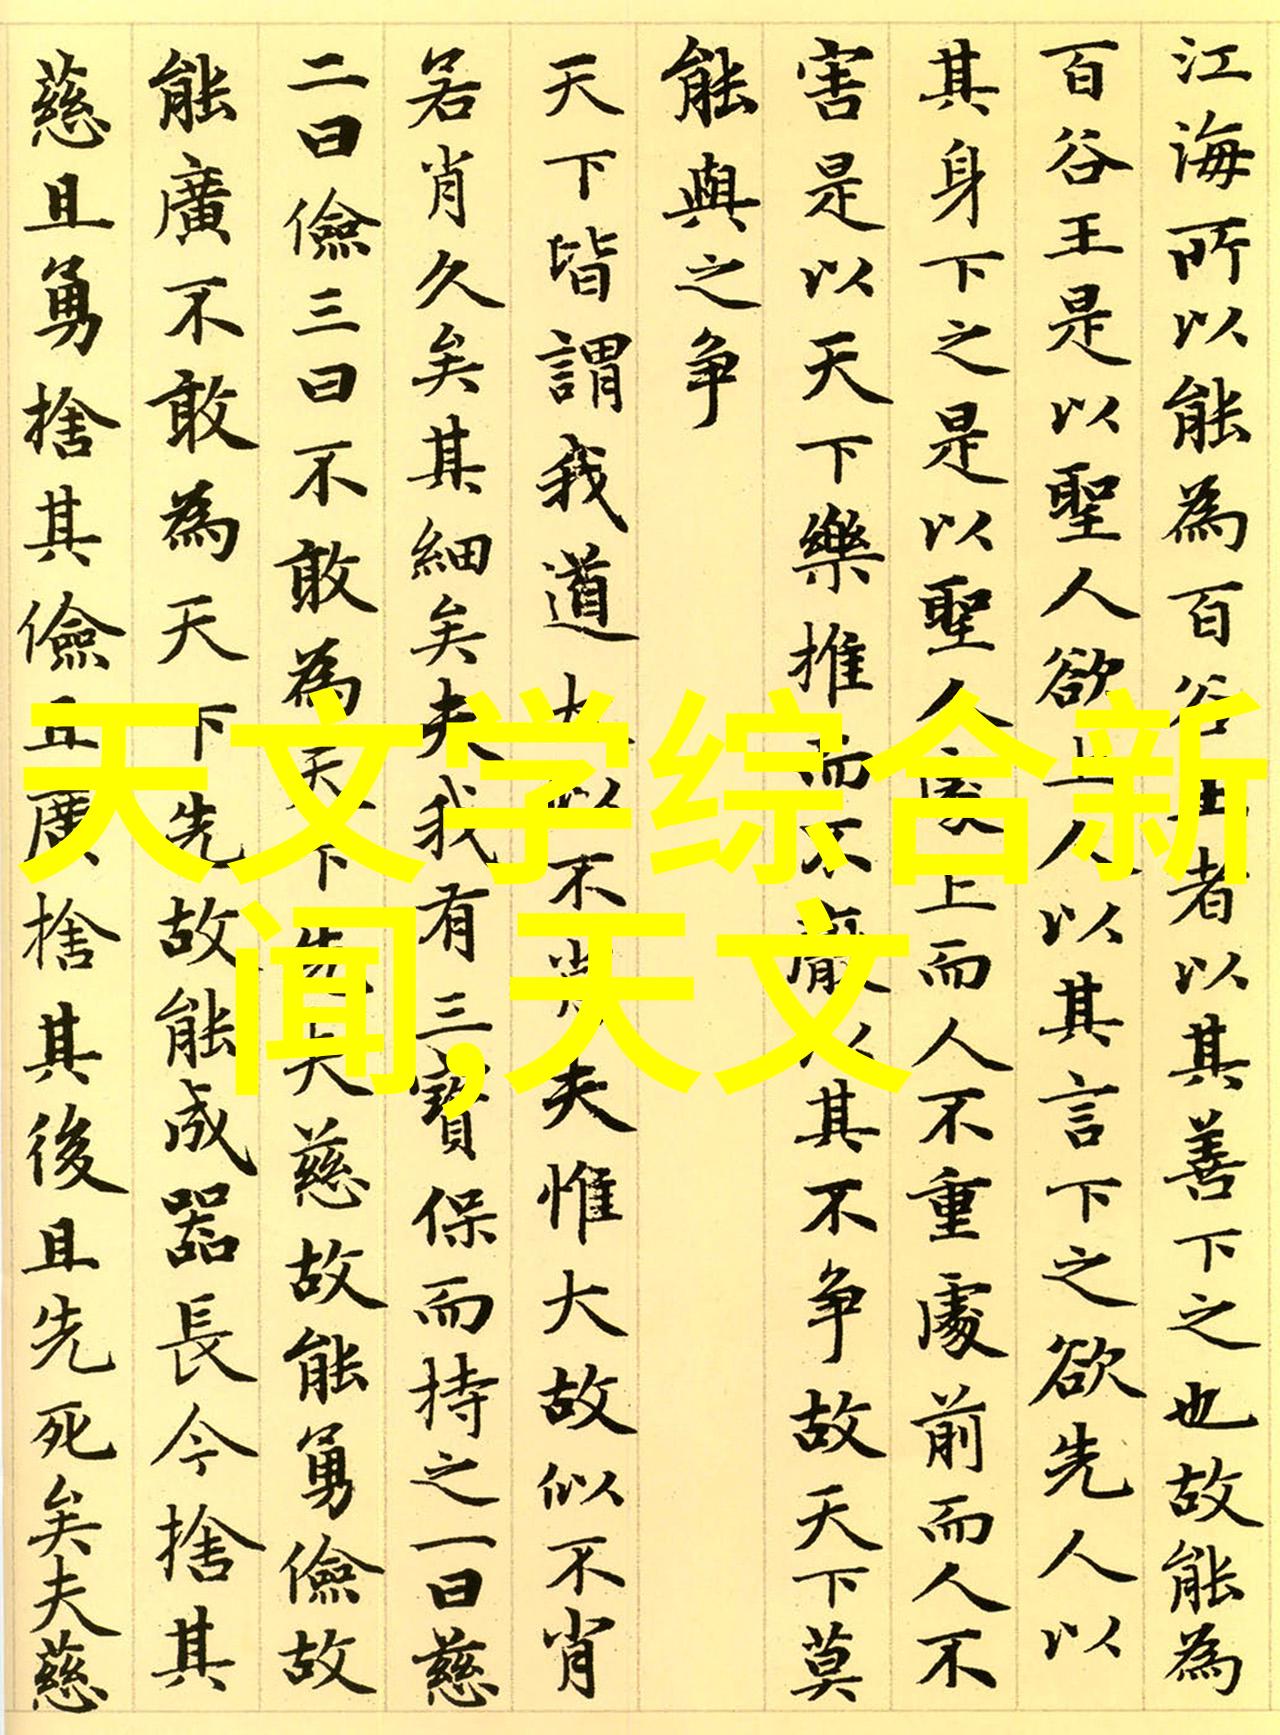 江海所以能為百谷王者以其善下之也故能為
百谷王是以聖人欲上人以其言下之欲先人以
其身下之是以聖人處上而人不重處前而人不
害是以天下樂推而不厭以其不争故天下莫
能與之争
天下皆謂我道大似不肖夫惟大故似不肖
若肖久矣其細矣夫我有三寶保而持之一曰慈
二曰儉三曰不敢為天下先夫慈故能勇儉故
能廣不敢為天下先故能成器長今捨其
慈且勇捨其儉且廣捨其後且先死矣夫慈
天文学综合新
闻,天文